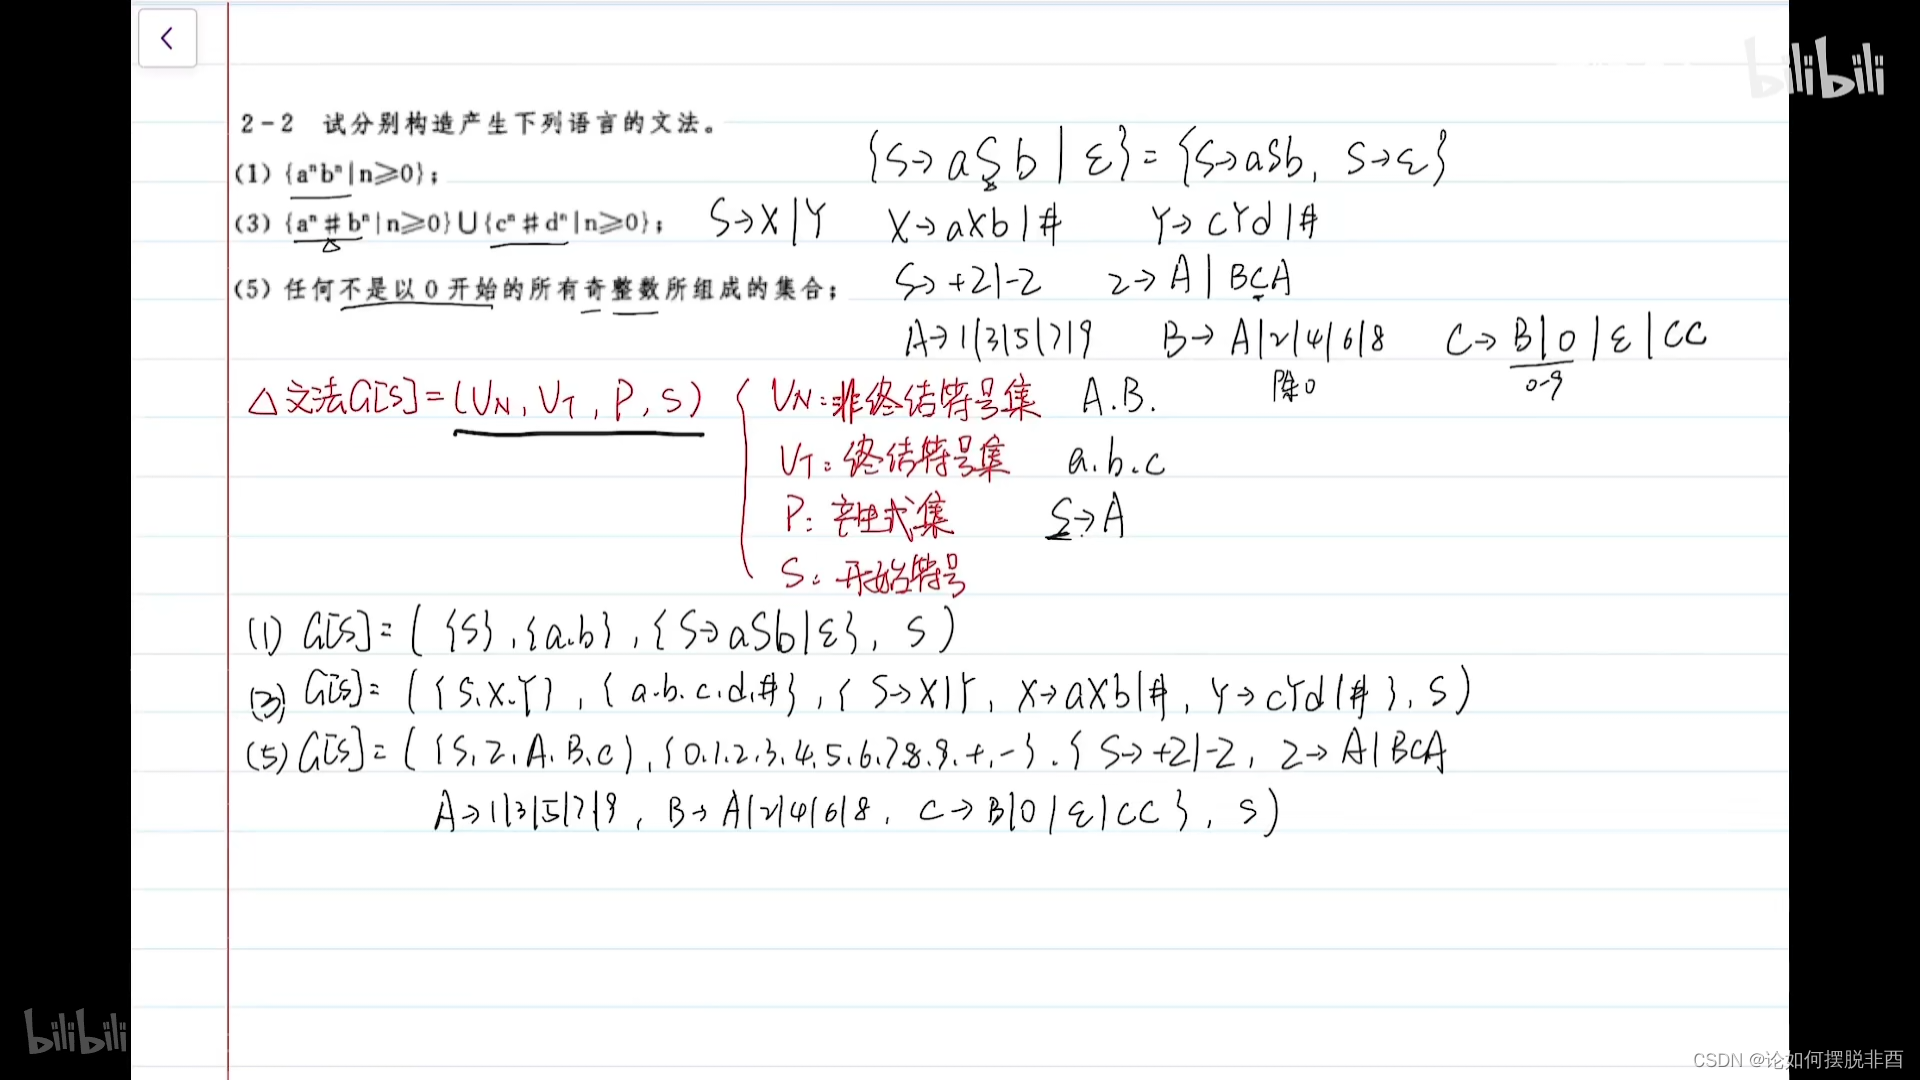 bilibili
2-2 试分别构造产生下列语言的文法。
{S→aSb|ε}={S→aSb, S→ε}
(1) {aⁿbⁿ|n≥0};
(3) {aⁿ#bⁿ|n≥0}∪{cⁿ#dⁿ|n≥0}; S→X|Y X→aXb|# Y→cYd|#
(5) 任何不是以0开始的所有奇整数所组成的集合; S→+Z|-Z Z→A|BCA
A→1|3|5|7|9 B→A|2|4|6|8 C→B|0|ε|CC
除0 0-9
△文法G[S]=(UN, UT, P, S) { UN:非终结符号集 A.B.
UT:终结符号集 a.b.c
P:产生式集 S→A
S:开始符号
(1) G[S]=({S},{a.b},{S→aSb|ε}, S)
(3) G[S]=({S.X.Y},{a.b.c.d.#},{S→X|Y, X→aXb|#, Y→cYd|#}, S)
(5) G[S]=({S,Z,A.B.C},{0.1.2.3.4.5.6.7.8.9.+.-}.{S→+Z|-Z, Z→A|BCA
A→1|3|5|7|9, B→A|2|4|6|8, C→B|0|ε|CC}, S)
bilibili
CSDN @论如何摆脱非酋